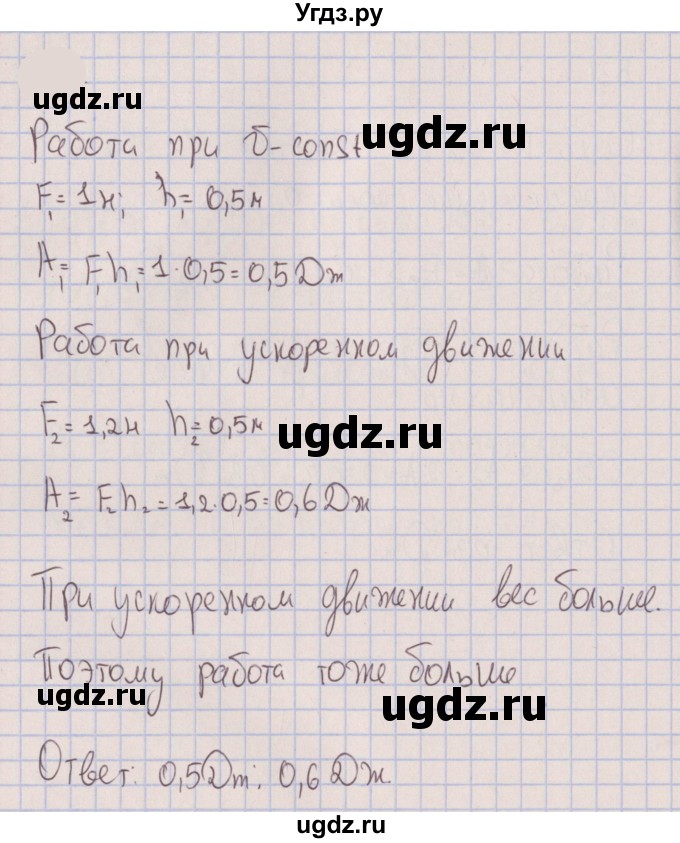 Угдз.ру
ugdz.ru
Работа при υ-const
ugdz.ru
F₁=1н; h₁=0,5м
A₁=F₁h₁=1·0,5=0,5Дж
Работа при ускоренном движении
F₂=1,2н h₂=0,5м
ugdz.ru
A₂=F₂h₂=1,2·0,5=0,6Дж
При ускоренном движении вес больше.
Поэтому работа тоже больше
ugdz.ru
ugdz.ru
Ответ: 0,5Дж; 0,6Дж.
ugdz.ru